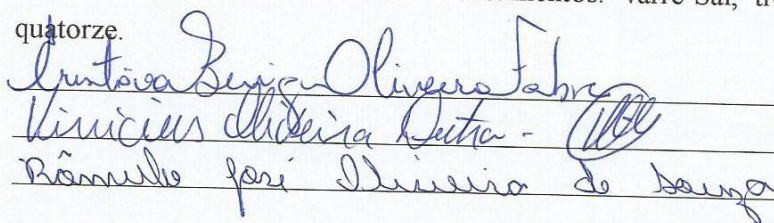 Varre-Sai, tr
quatorze.
Oliveira Fabre
Vinicius Oliveira Dutra -
Rômulo José Oliveira de Souza